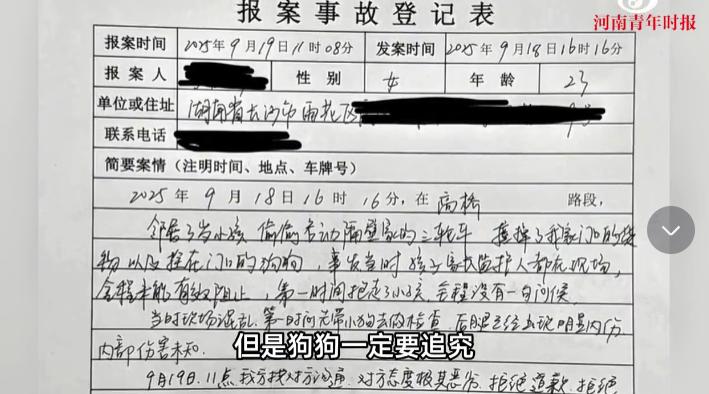 报案事故登记表
河南青年时报
报案时间 2025年9月19日11时08分 发案时间 2025年9月18日16时16分
报案人 性别 女 年龄 23
单位或住址 湖南省长沙市雨花区
联系电话
简要案情（注明时间、地点、车牌号）
2025年9月18日16时16分，在 高桥 路段，
邻居3岁小孩 偷偷启动隔壁家的三轮车 撞掉了我家门口的货
物以及拴在门口的狗狗，事发当时孩子家长监护人都在现场，
全程未能有效阻止，第一时间抱走了小孩，全程没有一句问候
当时现场混乱，第一时间先带小狗去做检查，后腿已经出现明显内伤
内部伤害未知．
但是狗狗一定要追究
9月19日．11点 我方找对方沟通，对方态度极其恶劣，拒绝道歉，拒绝